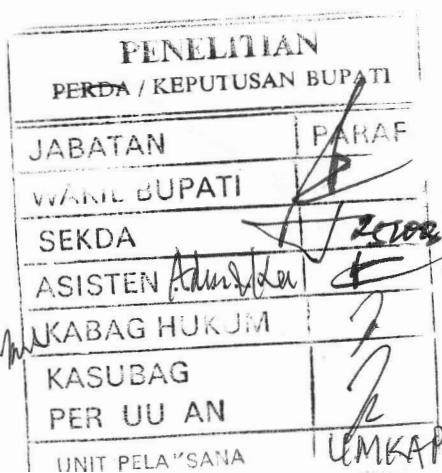 PENELITIAN
PERDA / KEPUTUSAN BUPATI
JABATAN PARAF
WAKIL BUPATI
SEKDA
ASISTEN
KABAG HUKUM
KASUBAG
PER UU AN
UNIT PELAKSANA